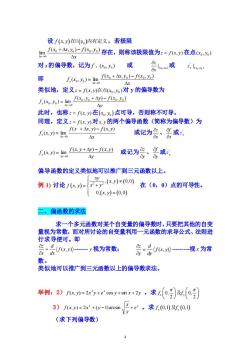 设 f(x,y)在U(x₀)内有定义,若极限
lim f(x₀+Δx,y₀)−f(x₀,y₀) / Δx 存在,则称该极限值为z=f(x,y)在点(x₀,y₀)
对 的偏导数,记为f′ₓ(x₀,y₀) 或 ∂z/∂x|(x₀,y₀) 或 z′ₓ|(x₀,y₀)
即 f′ₓ(x₀,y₀)=lim f(x₀+Δx,y₀)−f(x₀,y₀) / Δx
类似地,定义z=f(x,y)在U(x₀,y₀)对 y 的偏导数为
f′ᵧ(x₀,y₀)=lim f(x₀,y₀+Δy)−f(x₀,y₀) / Δy
此时,也称z=f(x,y)在(x₀,y₀)点可导,否则称不可导。
同理,定义z=f(x,y)对 的两个偏导函数(简称为偏导数)为
f′ₓ(x,y)=lim f(x+Δx,y)−f(x,y) / Δx 或记为∂z/∂x, ∂f/∂x 或z′ₓ
f′ᵧ(x,y)=lim f(x,y+Δy)−f(x,y) / Δy 或记为∂z/∂y, ∂f/∂y 或z′ᵧ
偏导函数的定义类似地可以推广到三元函数以上。
例 1)讨论 f(x,y)= { xy/(x²+y²),(x,y)≠(0,0) 0,(x,y)=(0,0) 在(0,0)点的可导性。
二、偏函数的求法
求一个多元函数对某个自变量的偏导数时,只要把其他的自变
量视为常数,而对所讨论的自变量利用一元函数的求导公式、法则进
行求导便可。即
∂z/∂x = d/dx (f(x,y))-------y 视为常数;∂z/∂y = d/dy (f(x,y))-------视 x 为常
数。
类似地可以推广到三元函数以上的偏导数求法。
举例:2)f(x,y)=2x²y+eˣcos y+sin x+2y,求f′ₓ(0,π/2)及f′ᵧ(0,π/2)
3)f(x,y)=2x²+(y−1)arcsin√(x/y)+eʸ,求f′ₓ(0,1)及f′ᵧ(0,1)
(求下列偏导数)